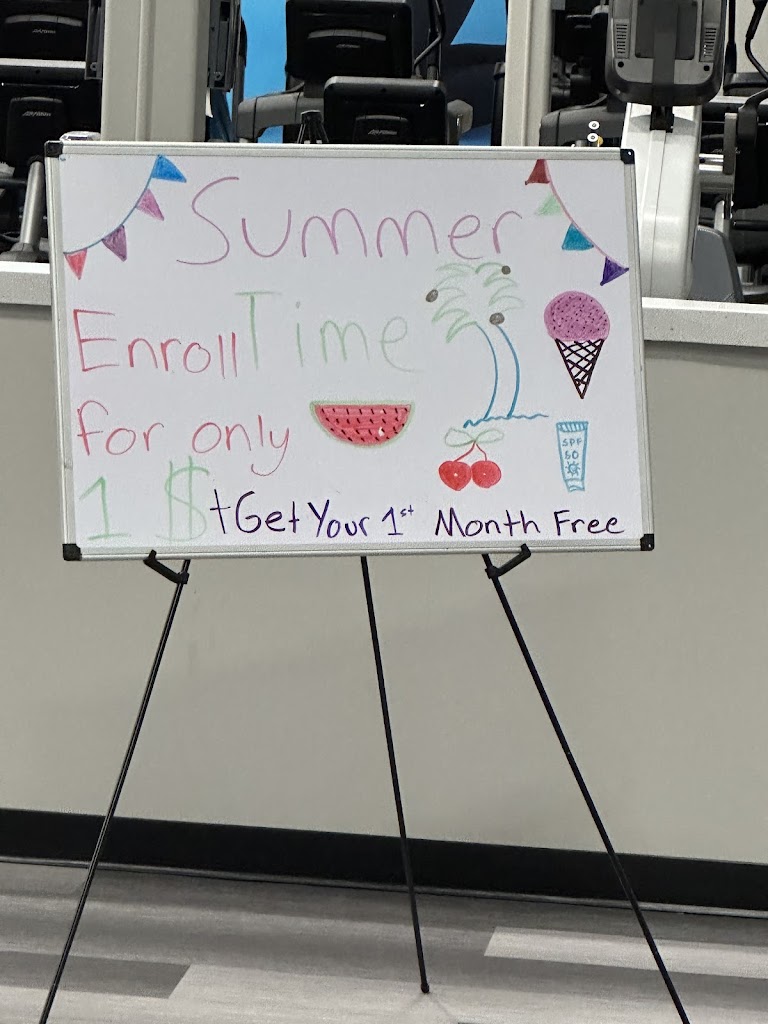 Summer
Enroll Time
for only
1 $ + Get Your 1st Month Free
SPF
50